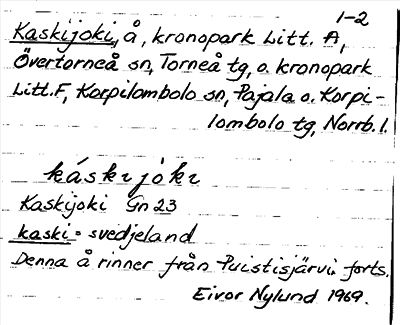 1-2
Kaskijoki, å, kronopark Litt. A,
Övertorneå sn, Torneå tg, o. kronopark
Litt. F, Korpilombolo sn, Pajala o. Korpi-
lombolo tg, Norrb. l.
káskıjòkı
Kaskijoki Gn 23
kaski = svedjeland
Denna å rinner från Puistisjärvi forts.
Eivor Nylund 1969.